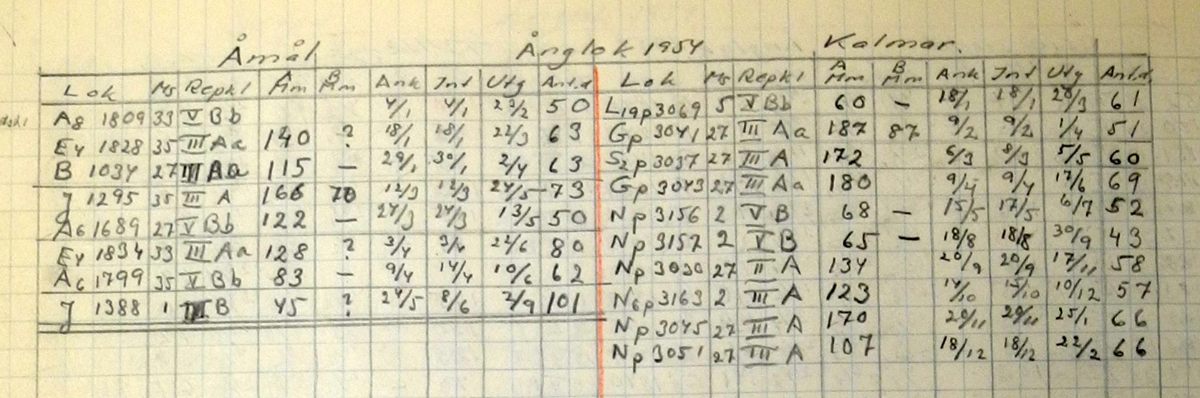 Åmål Ånglok 1954 Kalmar.
Lok Ms Repkl A Mm B Mm Ank Int Utg Ant.d. Lok Ms Repkl A Mm B Mm Ank Int Utg Ant.d.
A8 1809 33 V Bb 4/1 4/1 23/2 50 L19p 3069 5 V Bb 60 – 18/1 18/1 20/3 61
E4 1828 35 III Aa 140 ? 18/1 18/1 22/3 63 Gp 3041 27 III Aa 187 87 9/2 9/2 1/4 51
B 1034 27 III Aa 115 – 29/1 30/1 2/4 63 S2p 3037 27 III A 172 8/3 5/5 60
J 1295 35 III A 166 70 12/3 12/3 24/5 73 Gp 3043 27 III Aa 180 9/4 9/4 17/6 69
A6 1689 27 V Bb 122 – 24/3 24/3 13/5 50 Np 3156 2 V B 68 – 15/5 17/5 6/7 52
E4 1834 33 III Aa 128 ? 3/4 3/4 80 Np 3157 2 V B 65 – 18/8 18/8 30/9 43
A6 1799 35 V Bb 83 – 9/4 14/4 10/6 62 Np 3030 27 II A 134 20/9 20/9 17/11 58
J 1388 1 III B 45 ? 24/5 8/6 2/9 101 N6p 3163 2 III A 123 14/10 15/10 10/12 57
Np 3045 27 III A 170 29/11 29/11 25/1 66
Np 3051 27 III A 107 18/12 18/12 22/2 66